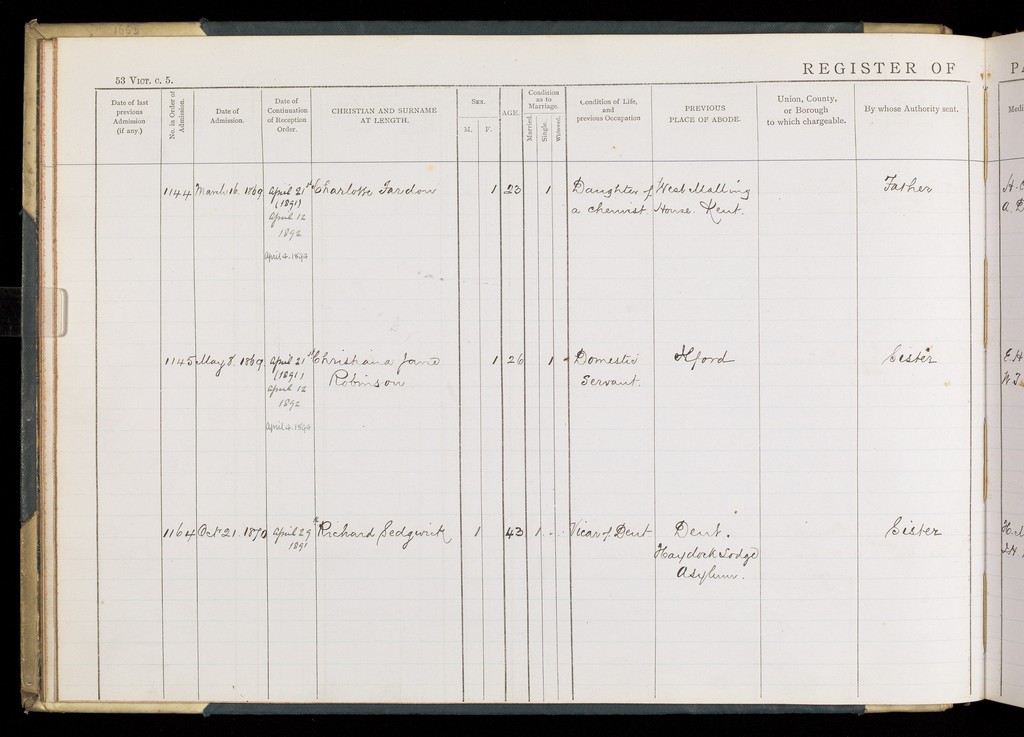 1663
53 Vict. c. 5.
REGISTER OF
PA
Date of last previous Admission (if any.)
No. in Order of Admission.
Date of Admission.
Date of Continuation of Reception Order.
CHRISTIAN AND SURNAME AT LENGTH.
Sex.
M. F.
AGE.
Condition as to Marriage.
Married. Single. Widowed.
Condition of Life, and previous Occupation
PREVIOUS PLACE OF ABODE.
Union, County, or Borough to which chargeable.
By whose Authority sent.
Medi
1144 March 16. 1869 April 21st Charlotte Fardon 1 23 1 Daughter of West Malling Father H. C
(1891) a chemist. House. Kent. A. D
April 12
1892
April 4. 1894
1145 May 8. 1869. April 21st Christiana Jane 1 26 1 Domestic Ilford Sister E. H
(1891) Robinson Servant. W. J
April 12
1892
April 4. 1894
1164 Octr 21. 1870 April 29 Richard Sedgwick 1 43 1 Vicar of Dent Dent. Sister
1891 Haydock Lodge
Asylum.